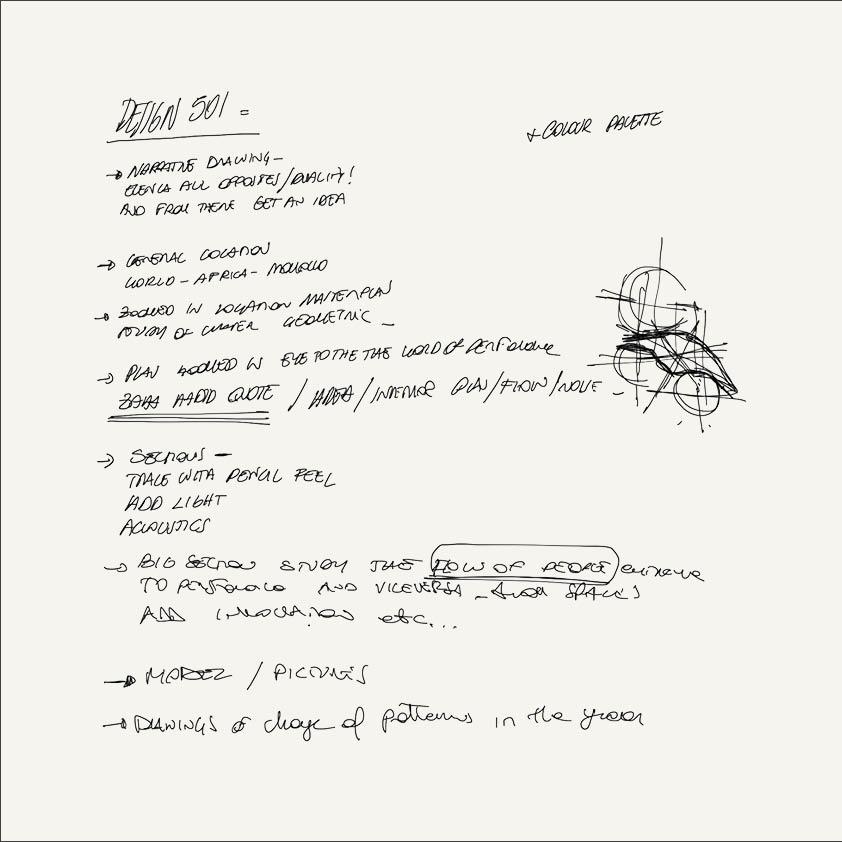 DESIGN 501 =
+ COLOUR PALETTE
→ NARRATIVE DRAWING –
ELENCA ALL OPPOSITES/DUALITY!
AND FROM THERE GET AN IDEA
→ GENERAL LOCATION
WORLD – AFRICA – MOROCCO
→ ZOOMED IN LOCATION MASTERPLAN
STUDY OF GEOMETRIC –
→ PLAN ZOOMED IN THE THE WORLD OF
ZAHA HADID QUOTE / / INTERIOR PLAN/FLOW/
→ SECTIONS –
TRACE WITH PENCIL FEEL
ADD LIGHT
ACOUSTICS
→ BIG SECTION STUDY THE FLOW OF PEOPLE
TO AND VICEVERSA – SHOW SPACES
ADD etc...
→ MODEL / PICTURES
→ DRAWINGS of change of patterns in the